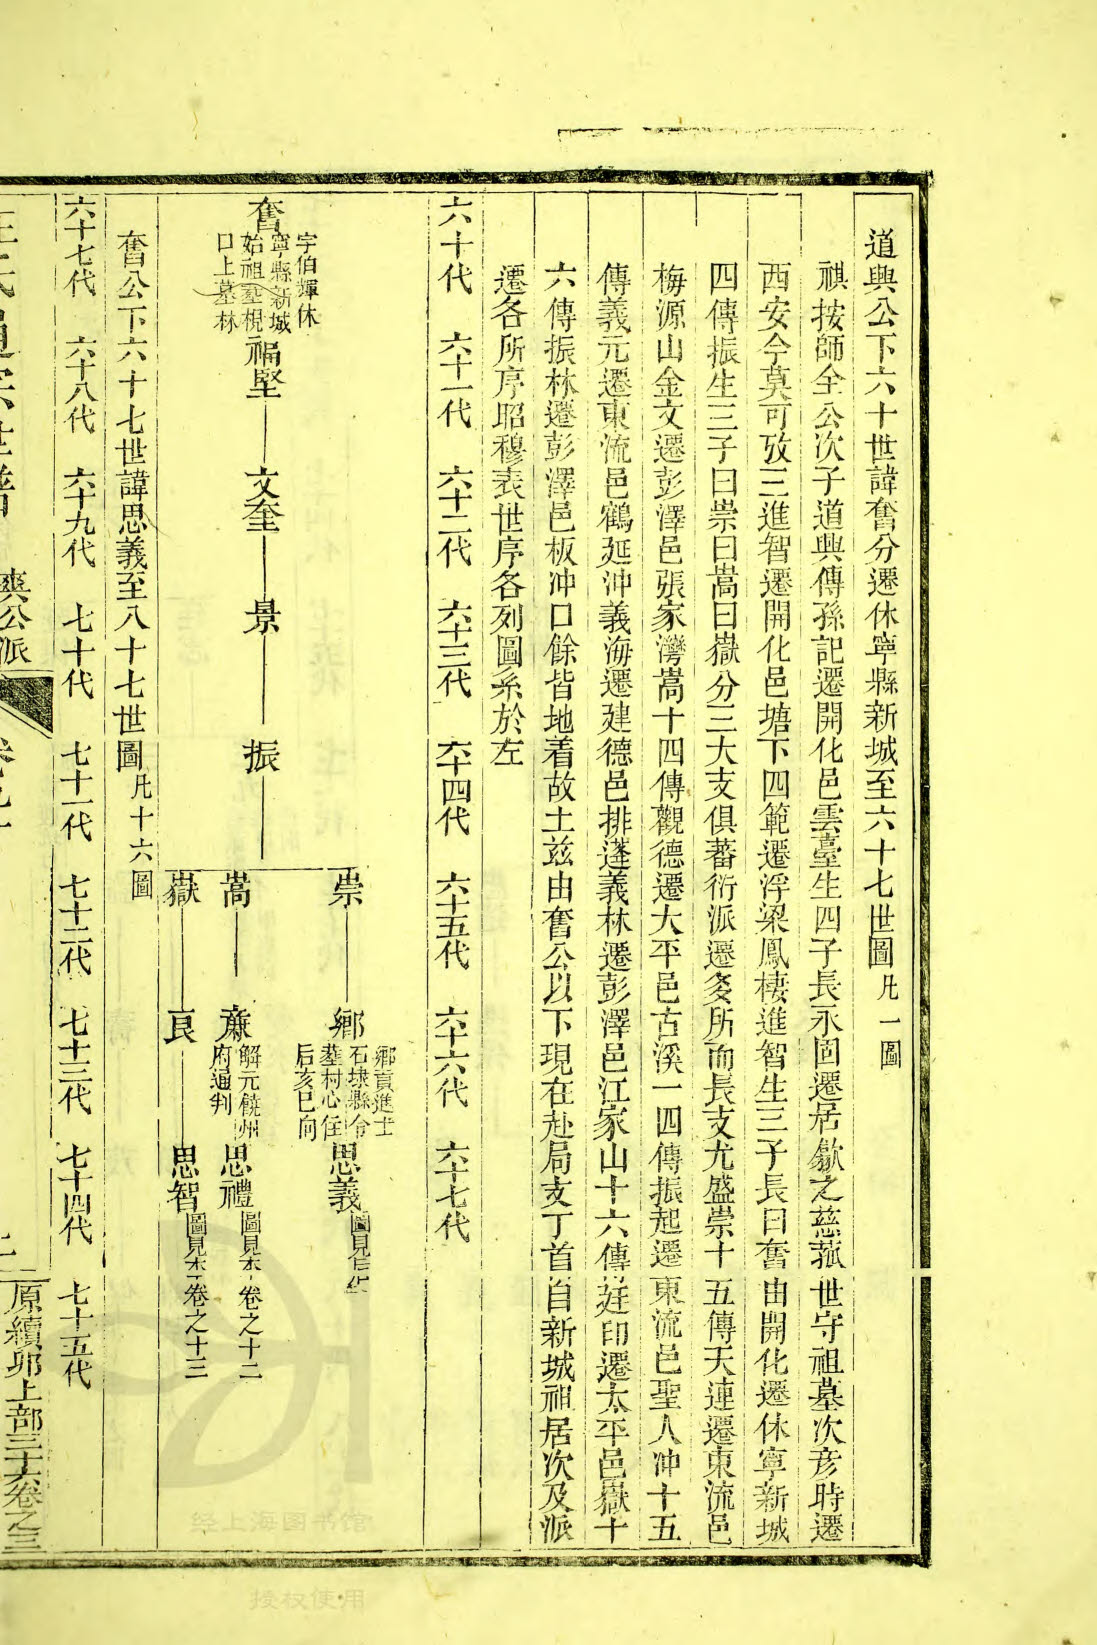 道興公下六十世諱奮分遷休寧縣新城至六十七世圖凡一圖
祺按師全公次子道興傳孫記遷開化邑雲臺生四子長永固遷居歙之慈菰世守祖墓次彥時遷
西安今莫可攷三進智遷開化邑塘下四範遷浮梁鳳棲進智生三子長曰奮由開化遷休寧新城
四傳振生三子曰崇曰嵩曰嶽分三大支俱蕃衍派遷多所而長支尤盛崇十五傳天連遷東流邑
梅源山金文遷彭澤邑張家灣嵩十四傳觀德遷大平邑古溪一四傳振起遷東流邑聖人冲十五
傳義元遷東流邑鶴延冲義海遷建德邑排蓬義林遷彭澤邑江家山十六傳廷印遷太平邑嶽十
六傳振林遷彭澤邑板冲口餘皆地着故土茲由奮公以下現在赴局支丁首自新城祖居次及派
遷各所序昭穆表世序各列圖系於左
六十代 六十一代 六十二代 六十三代 六十四代 六十五代 六十六代 六十七代
崇 鄉 鄉貢進士石埭縣令塟村心住后亥巳向 思義
奮 字伯輝休寧縣新城始祖塟梘口上墓林 福堅 文奎 景 振 嵩 亷 解元饒州府通判 思禮 圖見本卷之十二
嶽 良 思智 圖見本卷之十三
奮公下六十七世諱思義至八十七世圖凡十六圖
六十七代 六十八代 六十九代 七十代 七十一代 七十二代 七十三代 七十四代 七十五代
爽公派 原續卯上部三十六卷之三
经上海图书馆
授权使用